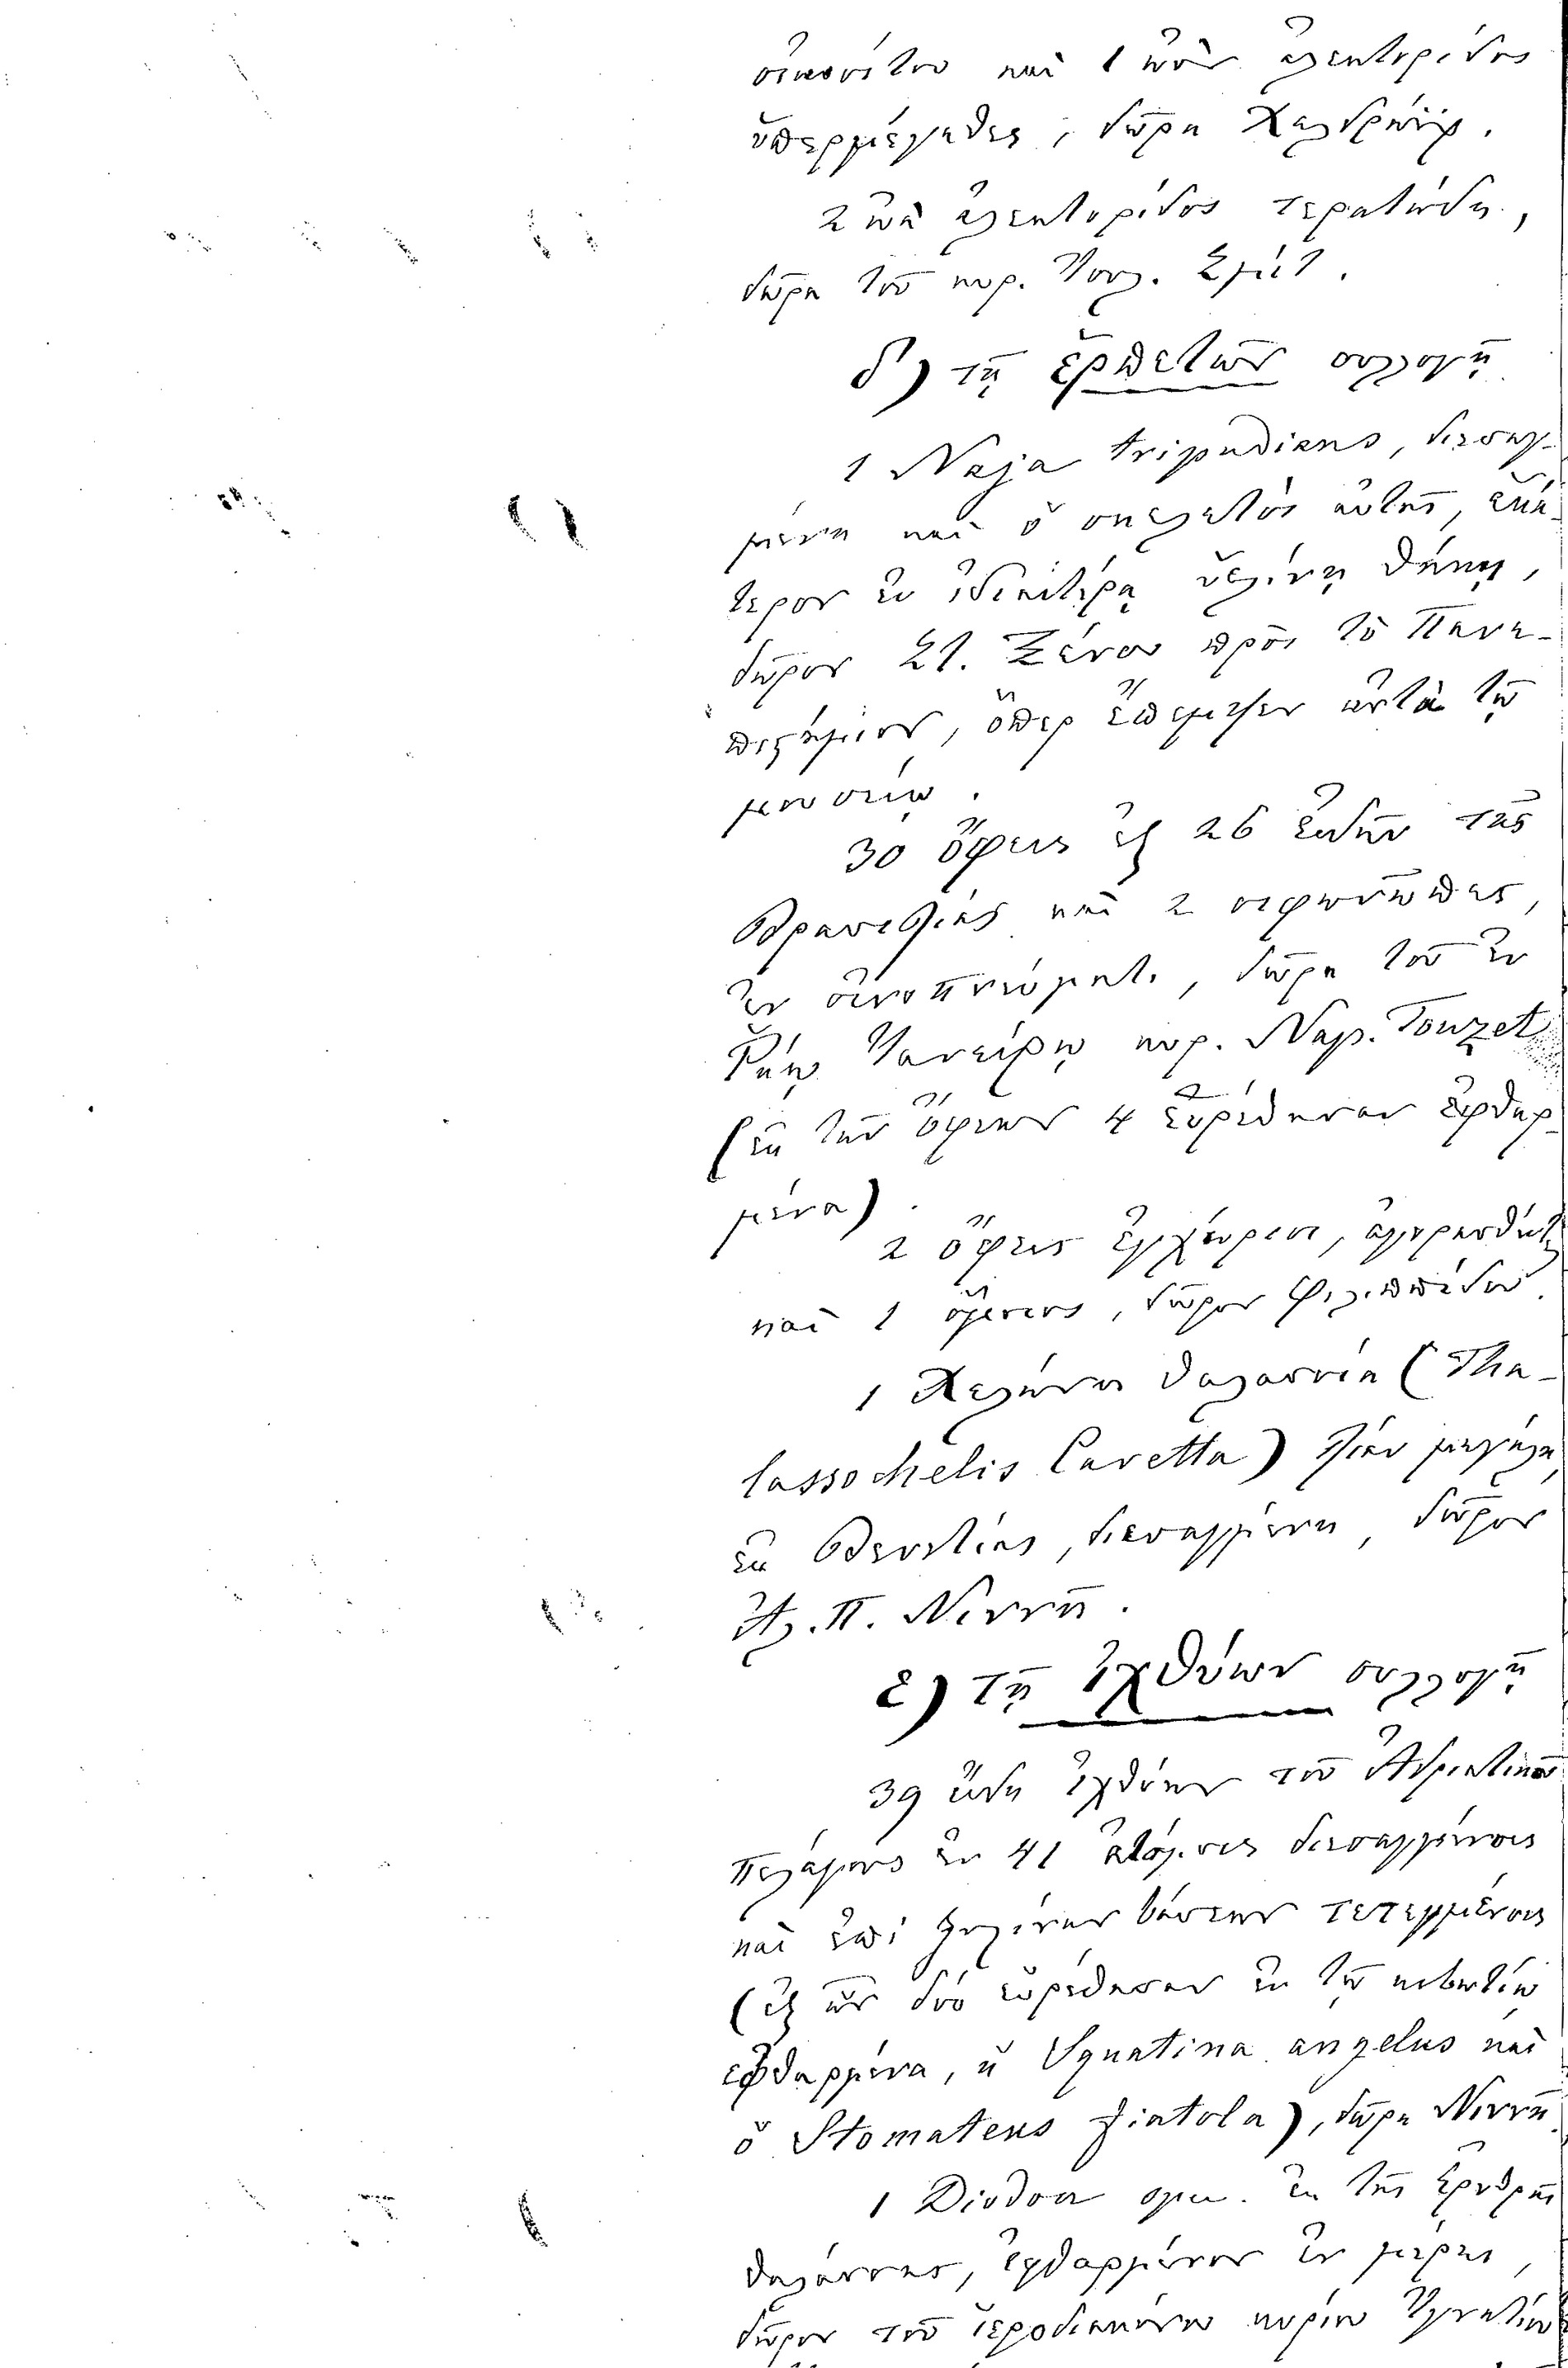 οἰκοσίτου καὶ 1 ᾠὸν ἀλεκτορίδος
ὑπερμέγεθες, δῶρα Χελδράιχ.
2 ᾠὰ ἀλεκτορίδος τερατώδη,
δῶρα τοῦ κυρ. Ἰουλ. Σμὶτ.
δ') τῇ ἑρπετῶν συλλογῇ
1 Naja tripudians, διεσκευ-
μένη καὶ ὁ σκελετὸς αὐτῆς, ἑκά-
τερον ἐν ἰδιαιτέρᾳ ὑαλίνῃ θήκῃ,
δῶρον Στ. Ξένου πρὸς τὸ Πανε-
πιστήμιον, ὅπερ ἔπεμψεν αὐτὰ τῷ
μουσείῳ.
30 ὄφεις ἐξ 26 εἰδῶν τῆς
Βρασιλίας καὶ 2
ἐν οἰνοπνεύματι, δῶρα τοῦ ἐν
Ῥίῳ Ἰανείρῳ κυρ. Ναπ. Touzet
(ἐκ τῶν ὄφεων 4 εὑρέθησαν ἐφθαρ-
μένα).
2 ὄφεις ἐγχώριοι,
καὶ 1 ὅμοιος, δῶρον Φιλιππίδου.
1 Χελώνη θαλασσία (Tha-
lassochelis Caretta) λίαν μεγάλη,
ἐκ Βενετίας, διεσκευμένη, δῶρον
Ἀλ. Π. Νιννῆ.
ε) τῇ ἰχθύων συλλογῇ
39 εἴδη ἰχθύων τοῦ Ἀδριατικοῦ
πελάγους ἐν 41 ἀτόμοις
καὶ ἐπὶ ξυλίνων βάσεων τεταγμένοις
(ἐξ ὧν δύο εὑρέθησαν ἐν τῷ κιβωτίῳ
ἐφθαρμένα, ἡ Squatina angelus καὶ
ὁ Stomateus fiatola), δῶρα Νιννῆ.
1 Diodon ἐκ τῆς Ἐρυθρᾶς
θαλάσσης, ἐφθαρμένον ἐν μέρει,
δῶρον τοῦ ἱεροδιακόνου κυρίου Ἰγνατίου